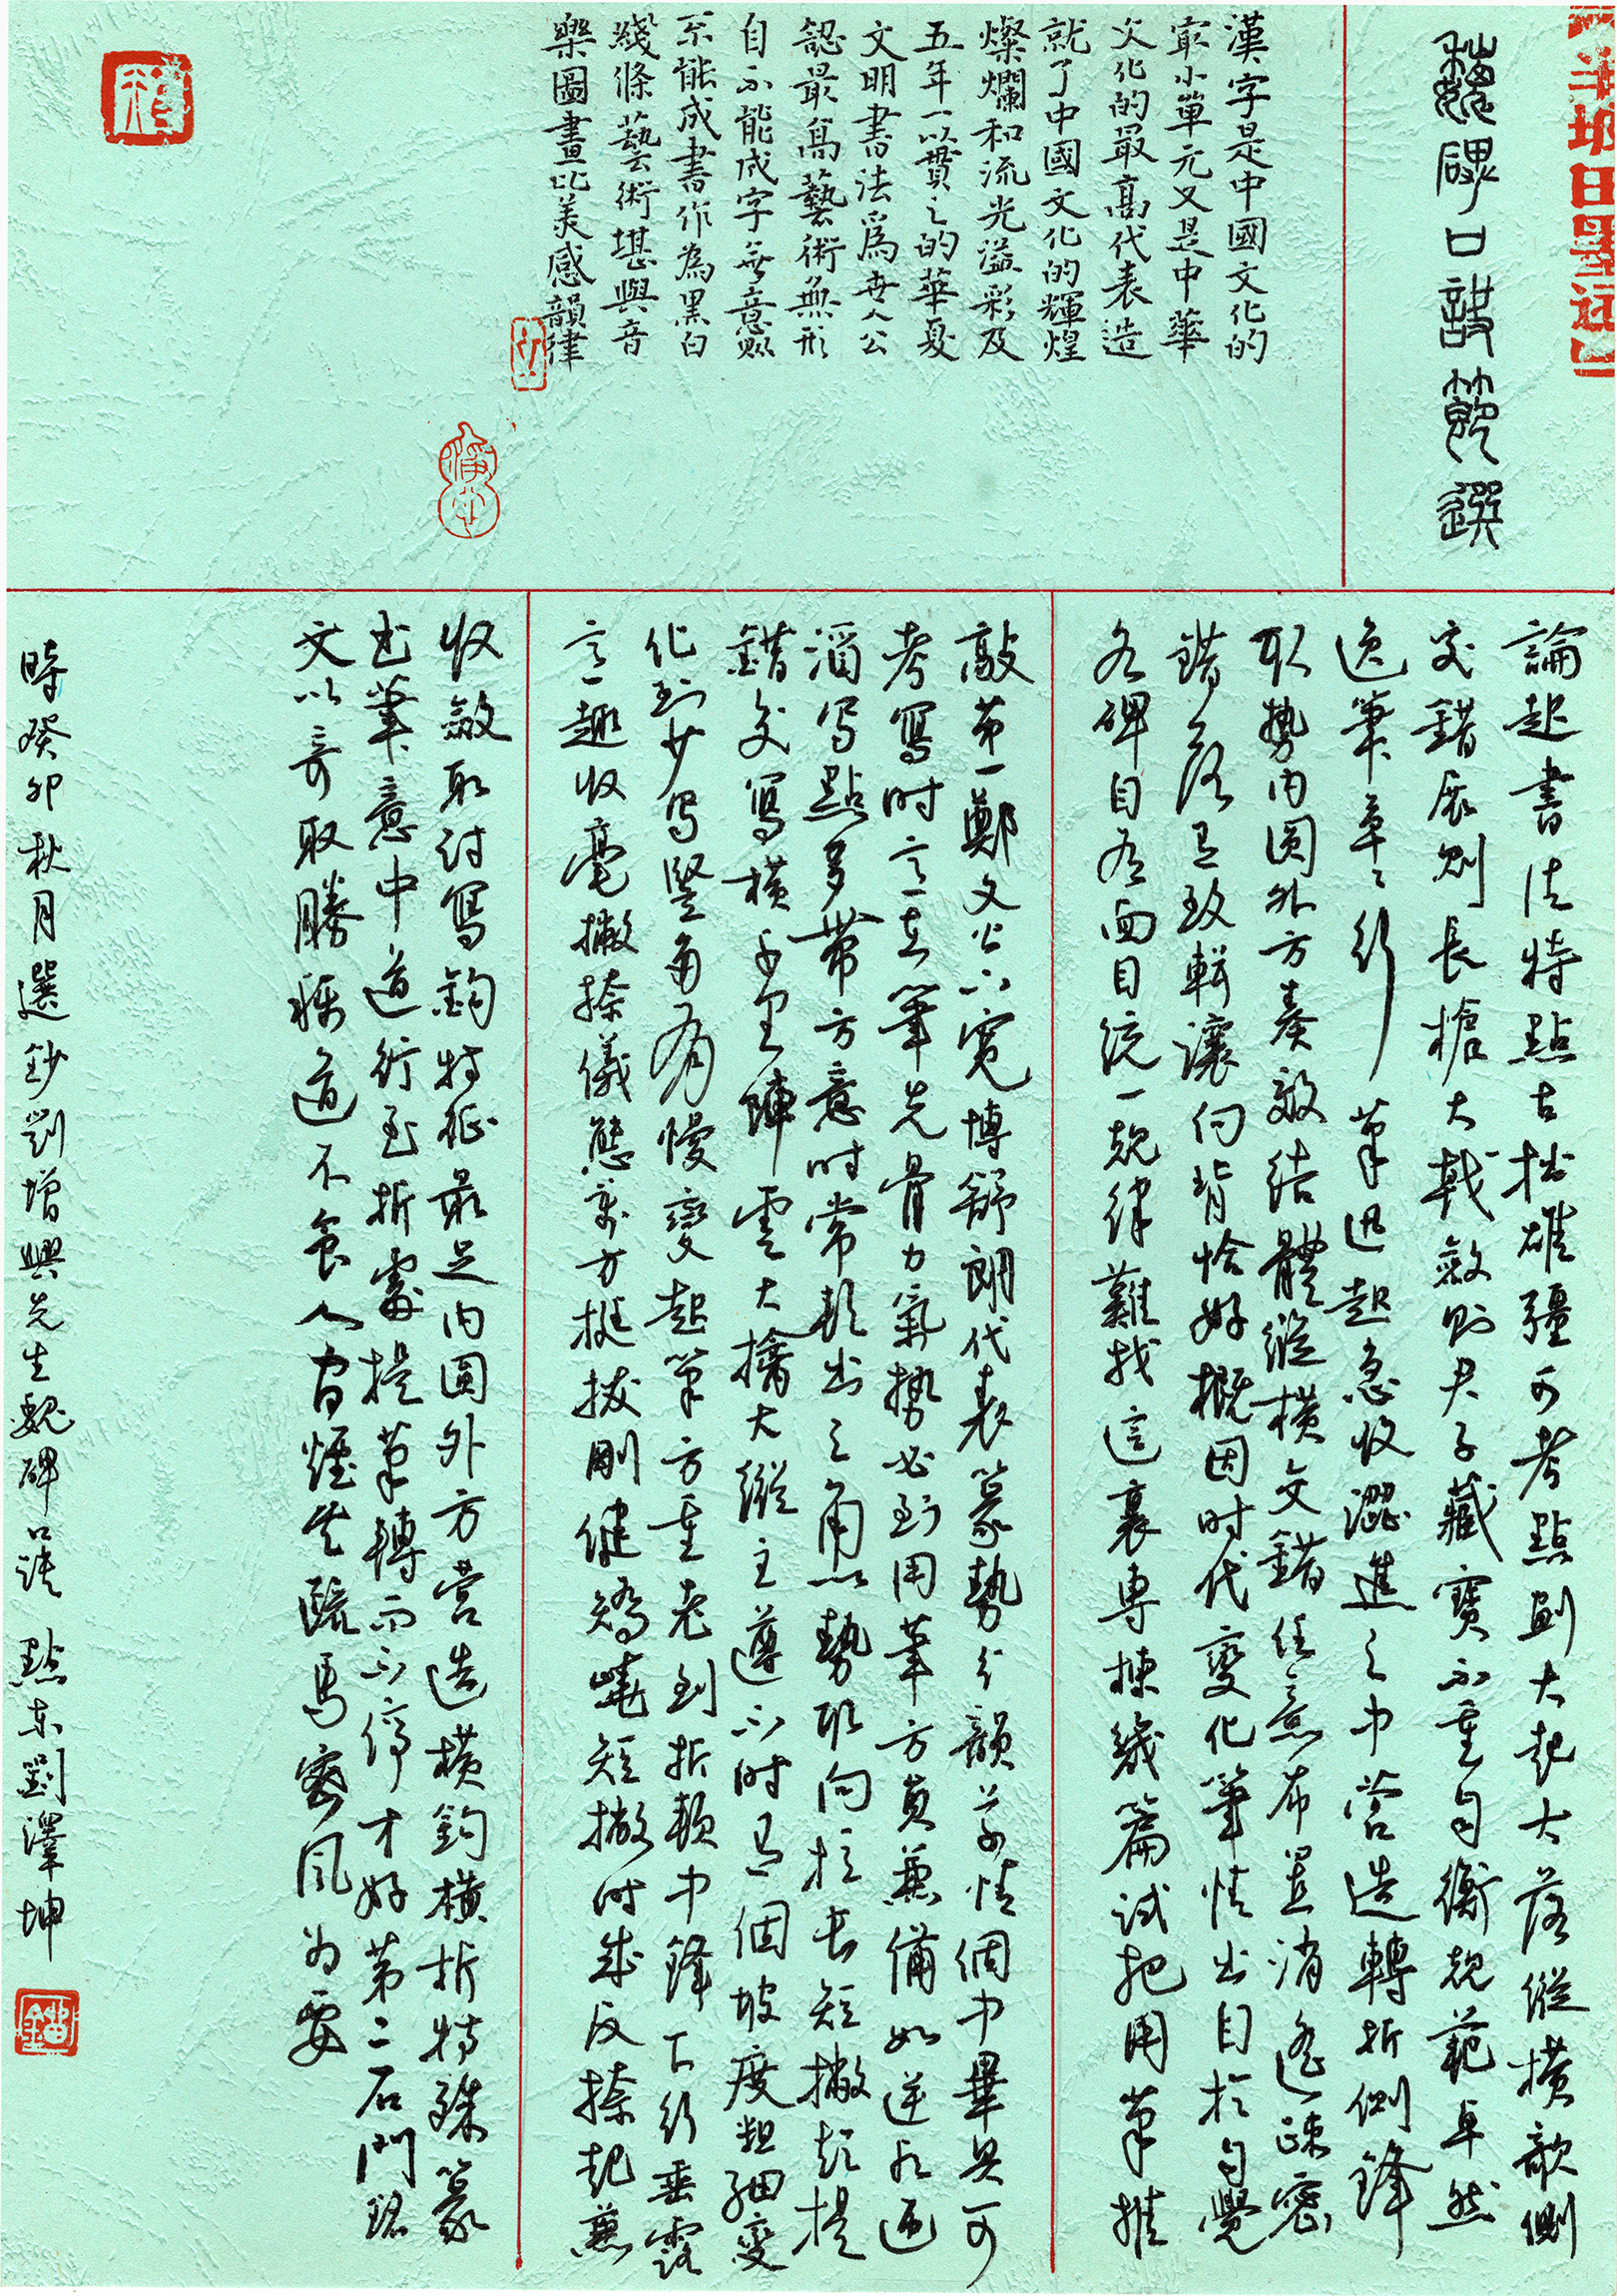 魏碑口訣節選
漢字是中國文化的
最小單元又是中華
文化的最高代表造
就了中國文化的輝煌
燦爛和流光溢彩及
五年一以貫之的華夏
文明書法爲世人公
認最高藝術無形
自不能成字無意點
不能成書作為黑白
綫條藝術堪與音
樂圖畫比美感韻律
論起書法特點古拙雄强可考點劃大起大落縱橫欹側
交錯展則長槍大戟斂則君子藏寶不重勻衡規范卓然
逸筆草草行筆迅起急收澀進之中营造轉折側鋒
取勢内圆外方奏效结體縱横文錯任意布置消遙疎密
錯落有致輯讓向背恰好概因时代變化筆情出自於自覺
各碑自有面目统一規律難找這裏專揀幾篇試把用筆推
敲第一鄭文公下寛博舒朗代表篆勢分韻草情個中畢具可
考寫时言在筆先骨力氣勢必到用筆方真兼備如逆水逦
滔写點多带方意时常靜出三角点勢取向於長短撇超提
錯交寫横千里陣雲大擒大縱主遵不时有個坡度粗细變
化到少写竪自有慢變起筆方重老到折頓中鋒下行垂露
言趣收毫撇捺儀態萬方挺拔剛健矯嬈短撇时成反捺起兼
收斂取討寫鈎特征最足内圓外方营造横鈎横折特殊篆
书筆意中道行至折處提筆轉而不停才好第二石門銘
文以奇取勝称道不食人间煙火疏馬密風为要
時癸卯秋月選鈔劉增興先生魏碑口诀 點东劉澤坤